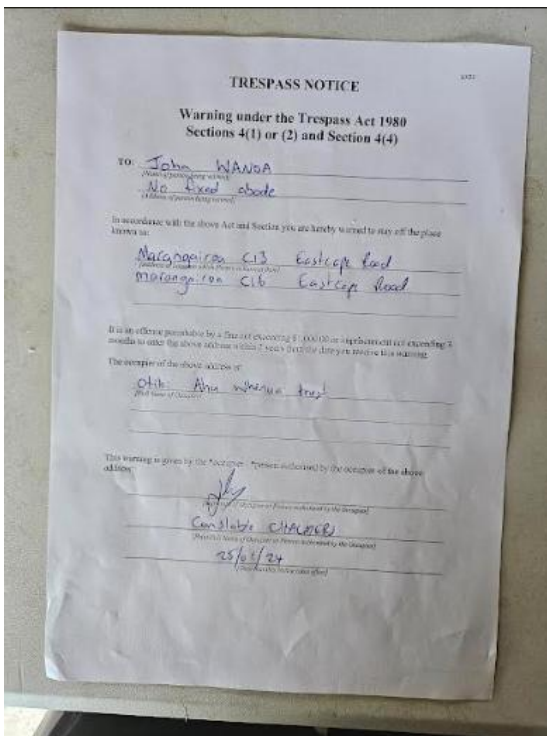 TRESPASS NOTICE
Warning under the Trespass Act 1980
Sections 4(1) or (2) and Section 4(4)
TO: John WANOA
(Name of person being warned)
No fixed abode
(Address of person being warned)
In accordance with the above Act and Section you are hereby warned to stay off the place
known as:
Marangairoa C13 Eastcape Road
marangairoa C16 Eastcape Road
It is an offence punishable by a fine not exceeding $1,000.00 or imprisonment not exceeding 3
months to enter the above address within 2 years from the date you receive this warning.
The occupier of the above address is:
Ahu whenua trust
(Full Name of Occupier)
This warning is given by the *occupier / *person authorised by the occupier of the above
address:
Occupier or Person authorised by the Occupier)
Constable
Name of Occupier or Person authorised by the Occupier)
/24